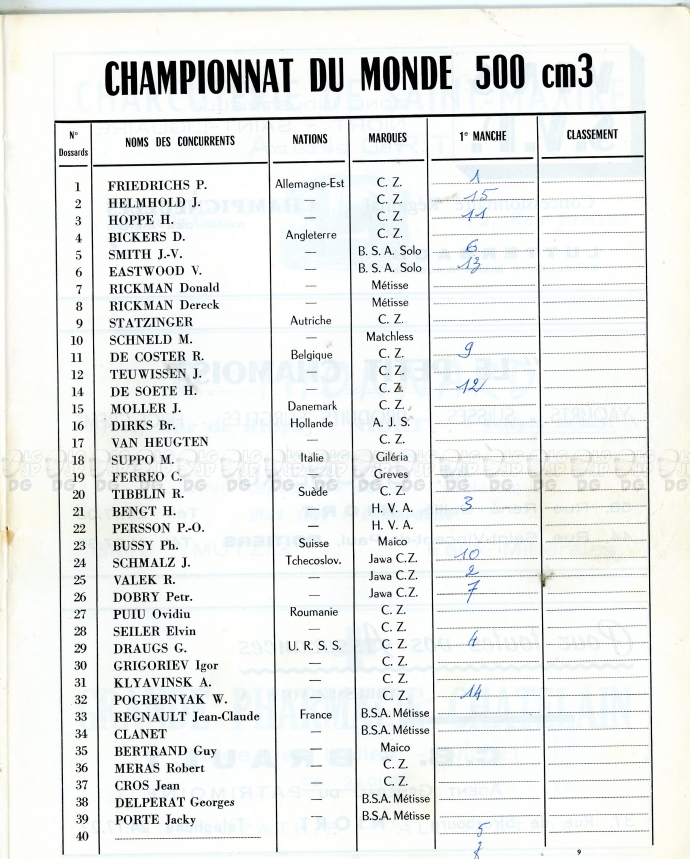 CHAMPIONNAT DU MONDE 500 cm3
N° Dossards NOMS DES CONCURRENTS NATIONS MARQUES 1° MANCHE CLASSEMENT
1 FRIEDRICHS P. Allemagne-Est C. Z. 1
2 HELMHOLD J. — C. Z. 15
3 HOPPE H. — C. Z. 11
4 BICKERS D. Angleterre C. Z.
5 SMITH J.-V. — B. S. A. Solo 6
6 EASTWOOD V. — B. S. A. Solo 13
7 RICKMAN Donald — Métisse
8 RICKMAN Dereck — Métisse
9 STATZINGER Autriche C. Z.
10 SCHNELD M. — Matchless
11 DE COSTER R. Belgique C. Z. 9
12 TEUWISSEN J. — C. Z.
14 DE SOETE H. — C. Z. 12
15 MOLLER J. Danemark C. Z.
16 DIRKS Br. Hollande A. J. S.
17 VAN HEUGTEN — C. Z.
18 SUPPO M. Italie Giléria
19 FERREO C. — Greves
20 TIBBLIN R. Suède C. Z.
21 BENGT H. — H. V. A. 3
22 PERSSON P.-O. — H. V. A.
23 BUSSY Ph. Suisse Maico
24 SCHMALZ J. Tchecoslov. Jawa C.Z. 10
25 VALEK R. — Jawa C.Z. 2
26 DOBRY Petr. — Jawa C.Z. 7
27 PUIU Ovidiu Roumanie C. Z.
28 SEILER Elvin — C. Z.
29 DRAUGS G. U. R. S. S. C. Z. 4
30 GRIGORIEV Igor — C. Z.
31 KLYAVINSK A. — C. Z.
32 POGREBNYAK W. — C. Z. 14
33 REGNAULT Jean-Claude France B.S.A. Métisse
34 CLANET — B.S.A. Métisse
35 BERTRAND Guy — Maico
36 MERAS Robert — C. Z.
37 CROS Jean — C. Z.
38 DELPERAT Georges — B.S.A. Métisse
39 PORTE Jacky — B.S.A. Métisse
40 5
8
9